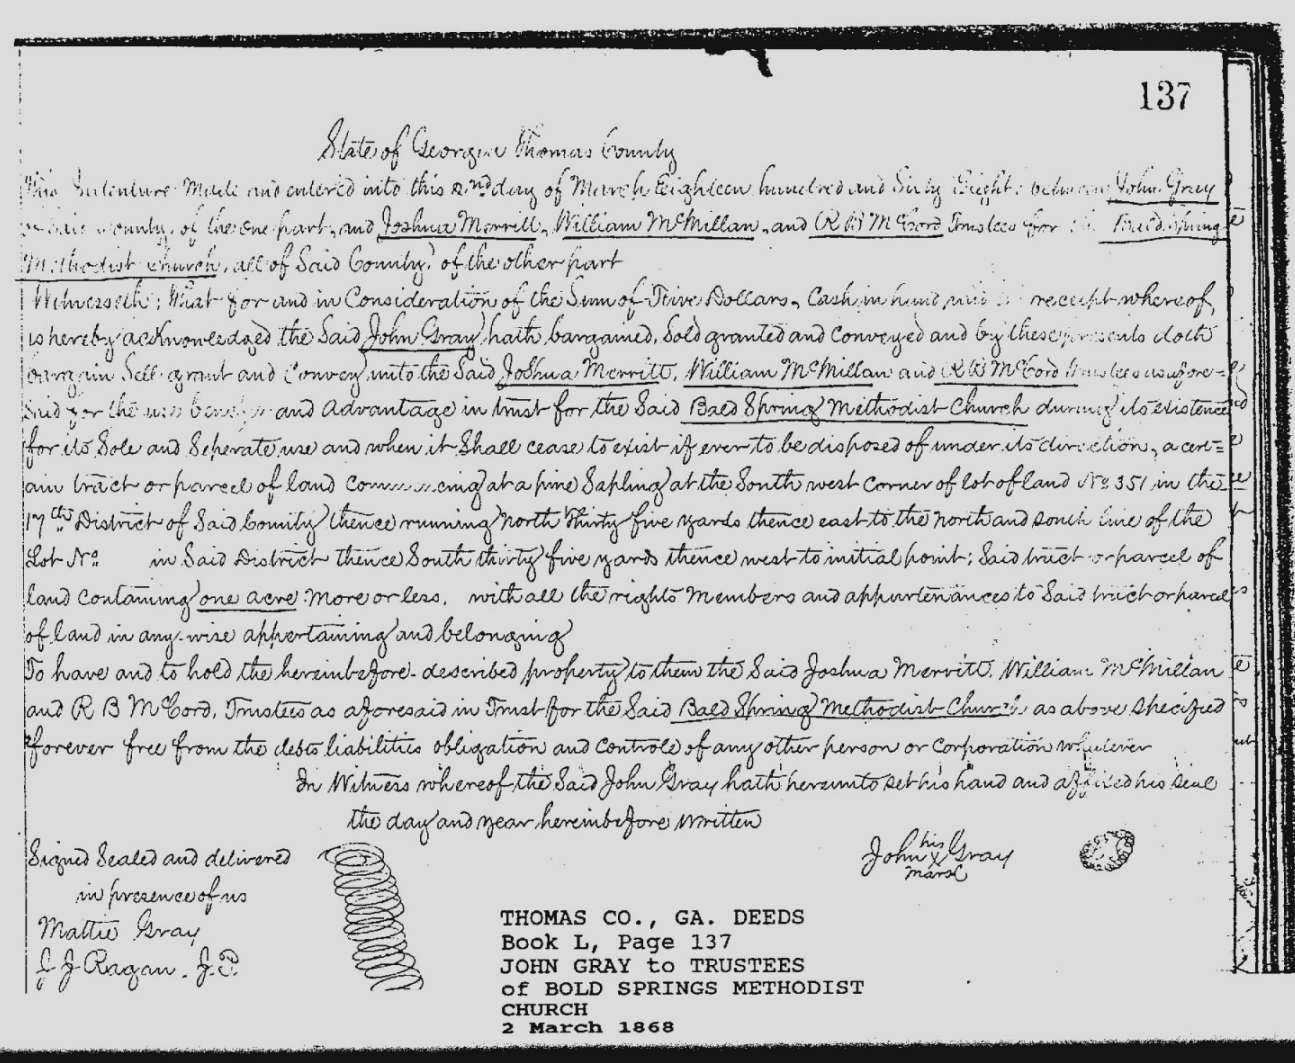 137
State of Georgia Thomas County
This Indenture Made and entered into this 2nd day of March Eighteen hundred and Sixty Eight: between John Gray
of Said County, of the one part, and Joshua Merrill, William McMillan, and R B McCord Trustees for the Bald Spring
Methodist Church, all of Said County, of the other part
Witnesseth; that for and in Consideration of the Sum of Five Dollars, Cash in hand paid receipt whereof,
is hereby acknowledged the Said John Gray, hath bargained, Sold granted and Conveyed and by these presents doth
bargain Sell grant and Convey, unto the Said Joshua Merritt, William McMillan and R B McCord trustees as afore=
Said for the use benefit and Advantage in trust for the Said Bald Spring Methodist Church during its existence
for its Sole and Seperate use and when it Shall cease to exist if ever to be disposed of under its direction, a cert=
ain tract or parcel of land Commencing at a pine Sapling at the South west Corner of lot of land No 351 in the
17th District of Said County thence running North thirty five yards thence east to the north and south line of the
Lot No in Said District thence South thirty five yards thence west to initial point; Said tract or parcel of
land containing one acre More or less, with all the rights Members and appurtenances to Said tract or parcel
of land in any-wise appertaining and belonging
To have and to hold the hereinbefore-described property to them the Said Joshua Merritt, William McMillan
and R B McCord, Trustees as aforesaid in Trust for the Said Bald Spring Methodist Church as above Specified
forever free from the debts liabilities obligation and controle of any other person or Corporation whatever
In Witness whereof the Said John Gray hath hereunto set his hand and affixed his Seal
the day and year hereinbefore written
Signed Sealed and delivered
in presence of us
Mattie Gray
J J Ragan. J.P.
his
John X Gray
mark
THOMAS CO., GA. DEEDS
Book L, Page 137
JOHN GRAY to TRUSTEES
of BOLD SPRINGS METHODIST
CHURCH
2 March 1868